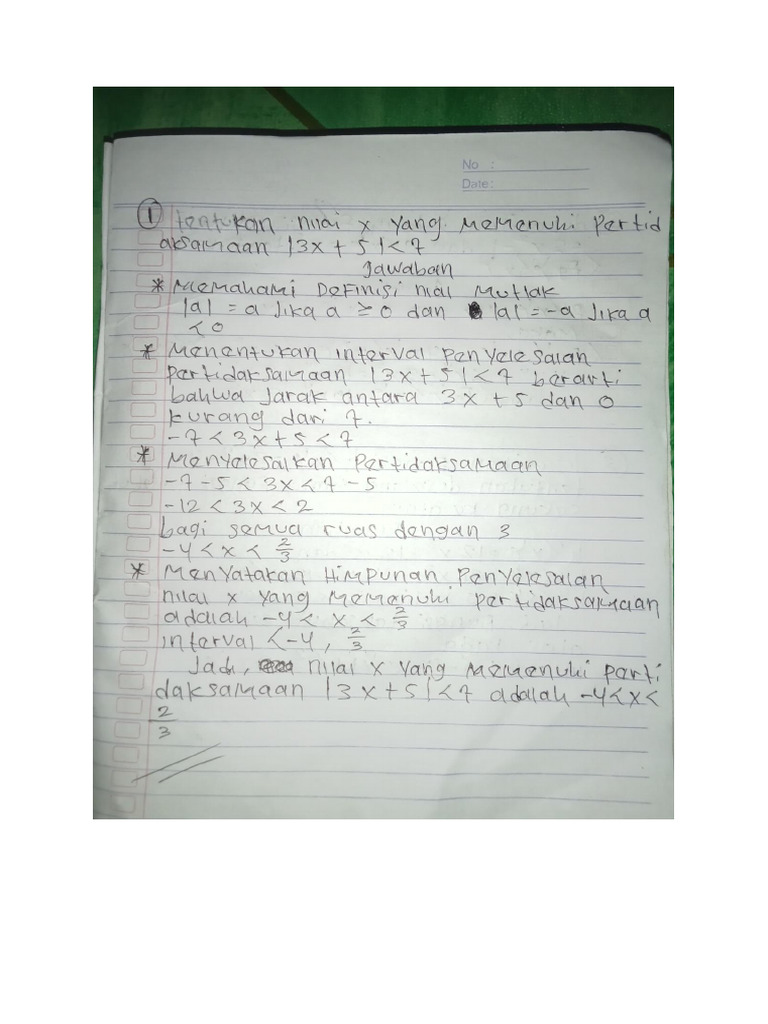 No :
Date:
① tentukan nilai x yang memenuhi pertid
aksamaan |3x + 5|<7
Jawaban
* Memahami Definisi nilai Mutlak
|a| = a Jika a ≥ 0 dan |a| = -a Jika a
< 0
* Menentukan interval Penyelesaian
Pertidaksamaan |3x+5|<7 berarti
bahwa Jarak antara 3x + 5 dan 0
kurang dari 7.
-7 < 3x+5 < 7
* Menyelesaikan Pertidaksamaan
-7-5 < 3x < 7 -5
-12 < 3x < 2
bagi semua ruas dengan 3
-4 < x < 2/3
* Menyatakan Himpunan Penyelesaian
nilai x yang memenuhi pertidaksamaan
adalah -4 < x < 2/3
interval <-4, 2/3
Jadi, nilai x yang memenuhi perti
daksamaan |3x+5|<7 adalah -4<x<
2/3